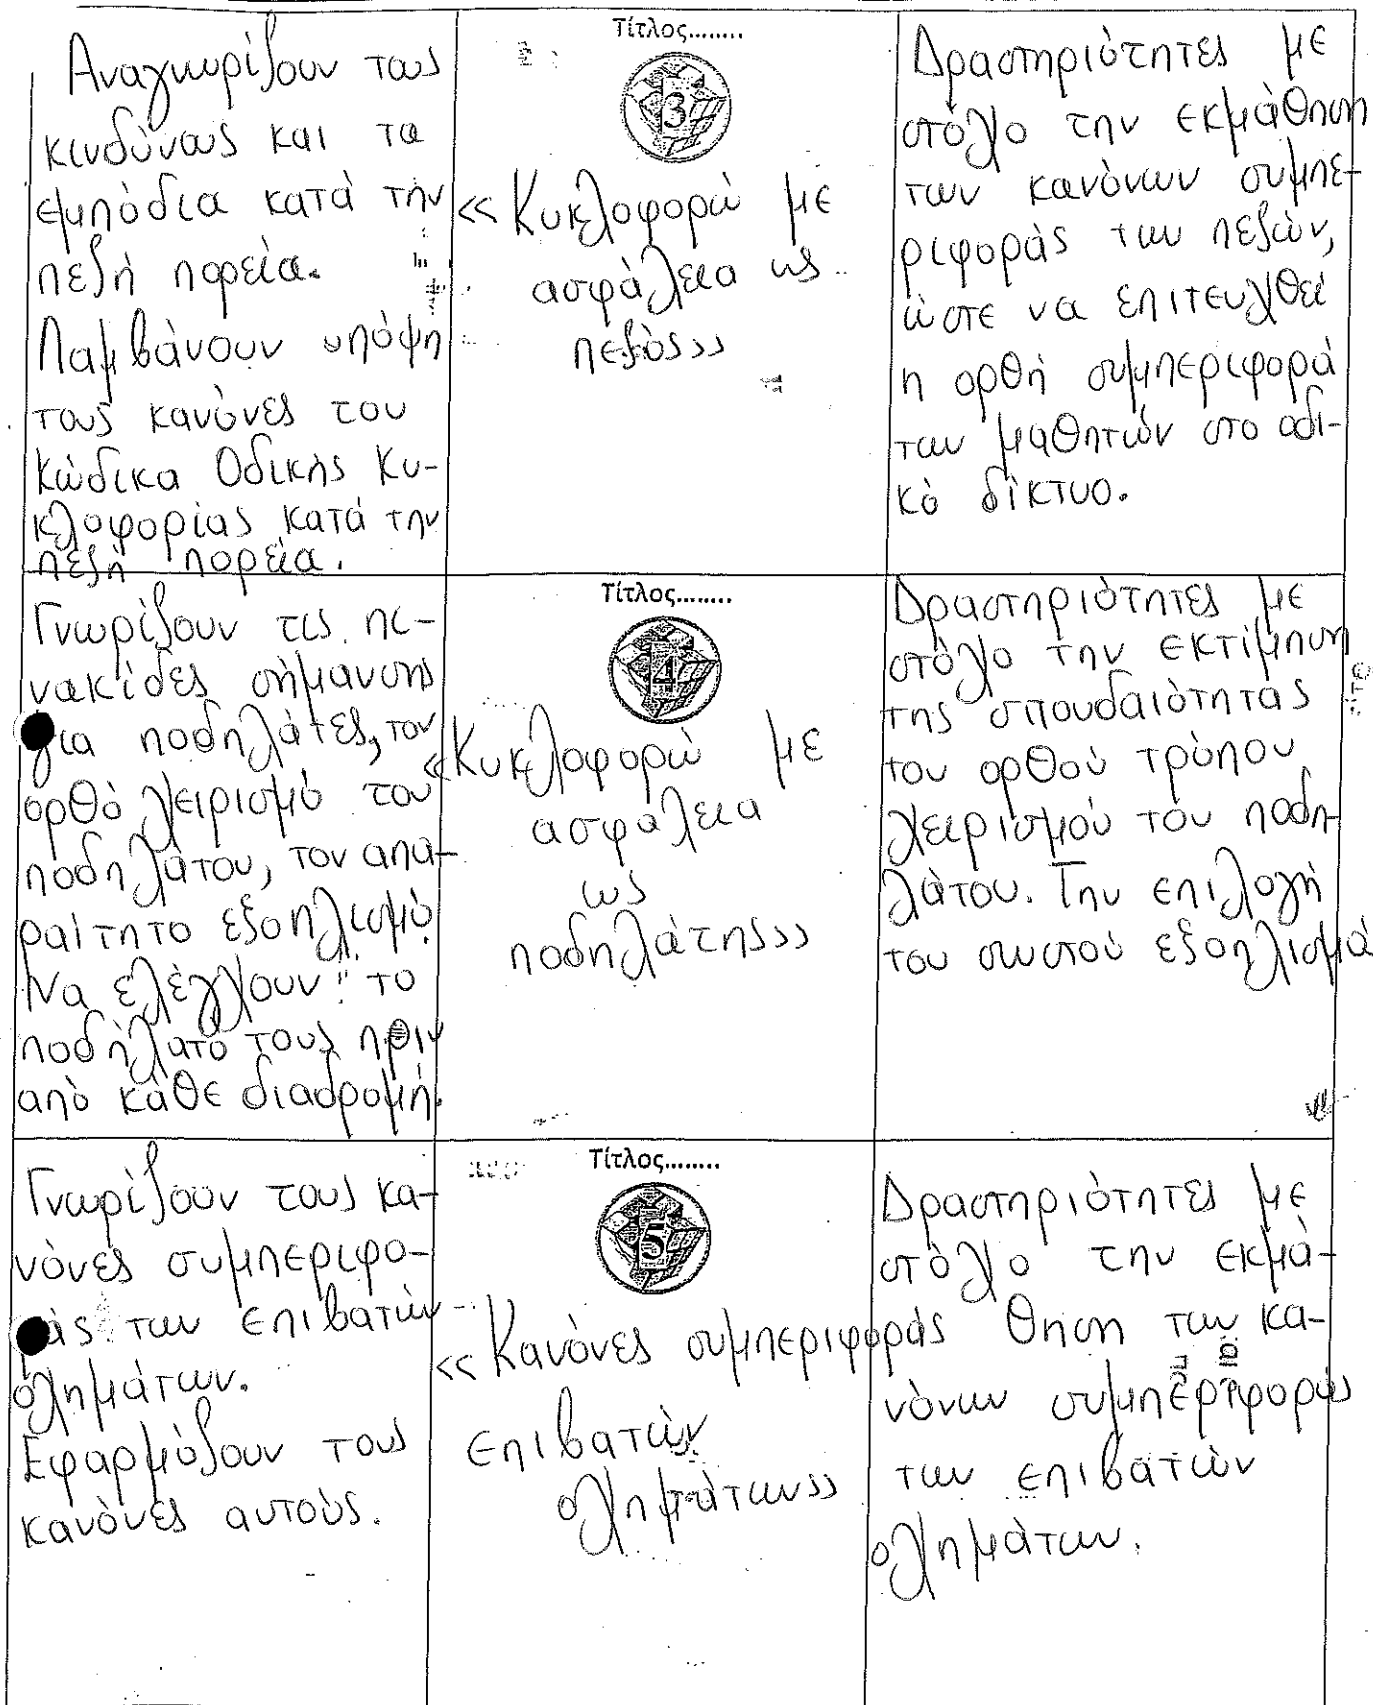 Αναγνωρίζουν τους
κινδύνους και τα
εμπόδια κατά την
πεζή πορεία.
Λαμβάνουν υπόψη
τους κανόνες του
Κώδικα Οδικής Κυ-
κλοφορίας κατά την
πεζή πορεία.
Τίτλος........
3
«Κυκλοφορώ με
ασφάλεια ως
πεζός»
Δραστηριότητες με
στόχο την εκμάθηση
των κανόνων συμπε-
ριφοράς των πεζών,
ώστε να επιτευχθεί
η ορθή συμπεριφορά
των μαθητών στο οδι-
κό δίκτυο.
Γνωρίζουν τις πι-
νακίδες σήμανσης
για ποδηλάτες, τον
ορθό χειρισμό του
ποδηλάτου, τον απα-
ραίτητο εξοπλισμό.
Να ελέγχουν το
ποδήλατό τους πριν
από κάθε διαδρομή.
Τίτλος........
4
«Κυκλοφορώ με
ασφάλεια
ως
ποδηλάτης»
Δραστηριότητες με
στόχο την εκτίμηση
της σπουδαιότητας
του ορθού τρόπου
χειρισμού του ποδη-
λάτου. Την επιλογή
του σωστού εξοπλισμού
Γνωρίζουν τους κα-
νόνες συμπεριφο-
ράς των επιβατών
οχημάτων.
Εφαρμόζουν τους
κανόνες αυτούς.
Τίτλος........
5
«Κανόνες συμπεριφοράς
επιβατών
οχημάτων»
Δραστηριότητες με
στόχο την εκμά-
θηση των κα-
νόνων συμπεριφοράς
των επιβατών
οχημάτων.